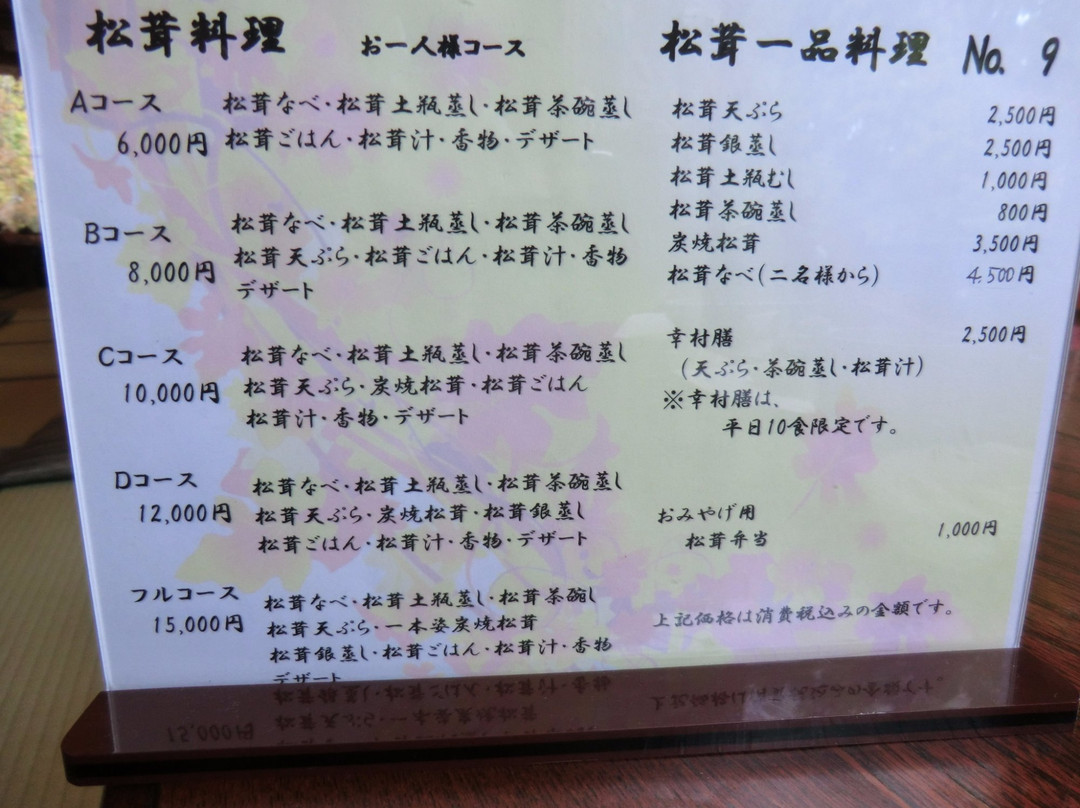 松茸料理 お一人様コース
Aコース 松茸なべ・松茸土瓶蒸し・松茸茶碗蒸し
6,000円 松茸ごはん・松茸汁・香物・デザート
Bコース 松茸なべ・松茸土瓶蒸し・松茸茶碗蒸し
8,000円 松茸天ぷら・松茸ごはん・松茸汁・香物
デザート
Cコース 松茸なべ・松茸土瓶蒸し・松茸茶碗蒸し
10,000円 松茸天ぷら・炭焼松茸・松茸ごはん
松茸汁・香物・デザート
Dコース 松茸なべ・松茸土瓶蒸し・松茸茶碗蒸し
12,000円 松茸天ぷら・炭焼松茸・松茸銀蒸し
松茸ごはん・松茸汁・香物・デザート
フルコース 松茸なべ・松茸土瓶蒸し・松茸茶碗し
15,000円 松茸天ぷら・一本姿炭焼松茸
松茸銀蒸し・松茸ごはん・松茸汁・香物
デザート
松茸一品料理 No. 9
松茸天ぷら 2,500円
松茸銀蒸し 2,500円
松茸土瓶むし 1,000円
松茸茶碗蒸し 800円
炭焼松茸 3,500円
松茸なべ(二名様から) 4,500円
幸村膳 2,500円
(天ぷら・茶碗蒸し・松茸汁)
※幸村膳は、
平日10食限定です。
おみやげ用
松茸弁当 1,000円
上記価格は消費税込みの金額です。